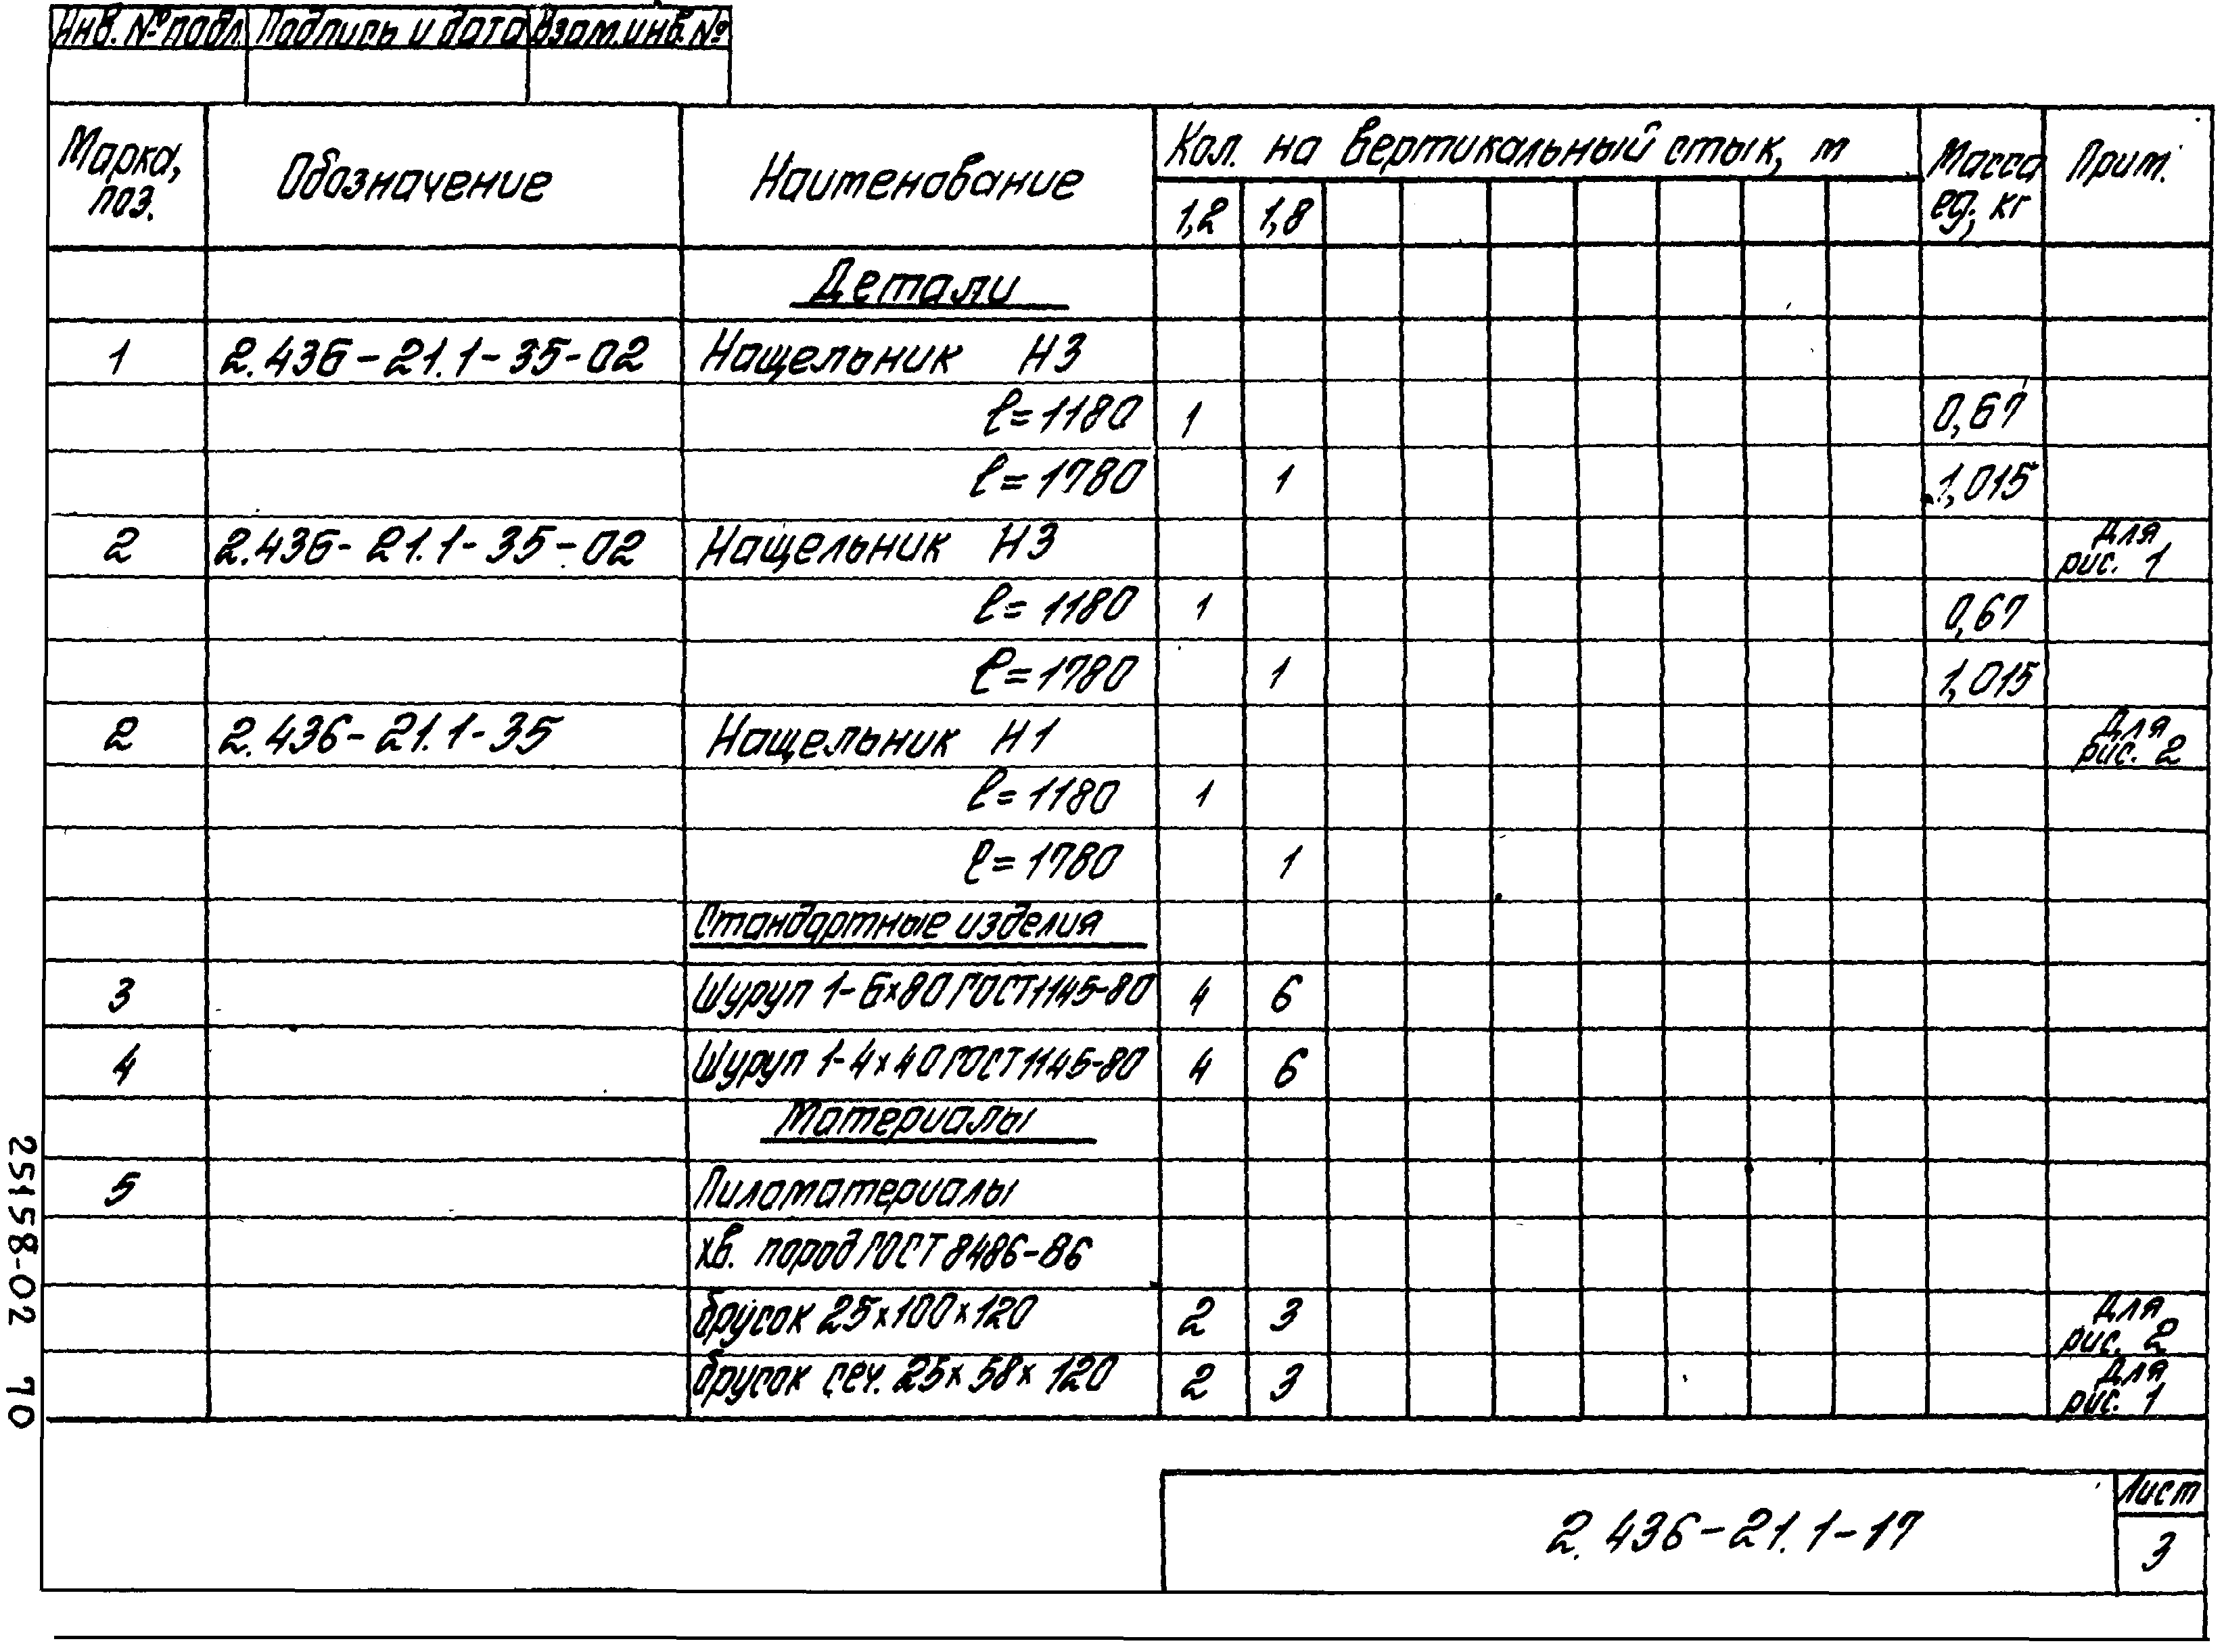 Инв. № подл. Подпись и дата Взам. инв. №
Марка, поз. Обозначение Наименование Кол. на вертикальный стык, м Масса ед., кг Прим.
1,2 1,8
Детали
1 2.436-21.1-35-02 Нащельник Н3
ℓ=1180 1 0,67
ℓ=1780 1 1,015
2 2.436-21.1-35-02 Нащельник Н3 Для рис. 1
ℓ=1180 1 0,67
ℓ=1780 1 1,015
2 2.436-21.1-35 Нащельник Н1 Для рис. 2
ℓ=1180 1
ℓ=1780 1
Стандартные изделия
3 Шуруп 1-6×80 ГОСТ 1145-80 4 6
4 Шуруп 1-4×40 ГОСТ 1145-80 4 6
Материалы
5 Пиломатериалы
хв. пород ГОСТ 8486-86
брусок 25×100×120 2 3 Для рис. 2
брусок сеч. 25×58×120 2 3 Для рис. 1
25158-02 70
2.436-21.1-17
Лист
3